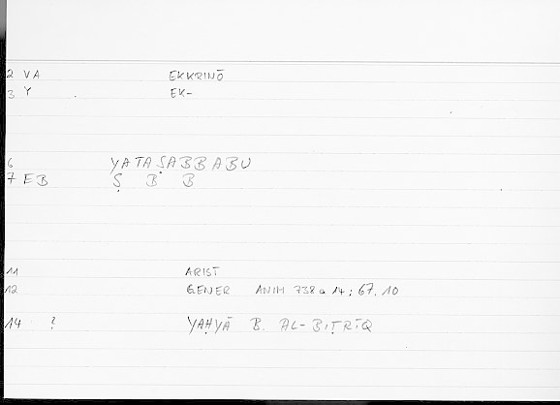 2 VA EKKRINŌ
3 Y EK-
6 YATAṢABBABU
7 EB Ṣ B B
11 ARIST
12 GENER ANIM 738a14; 67.10
14 ? YAḤYĀ B. AL-BIṬRĪQ